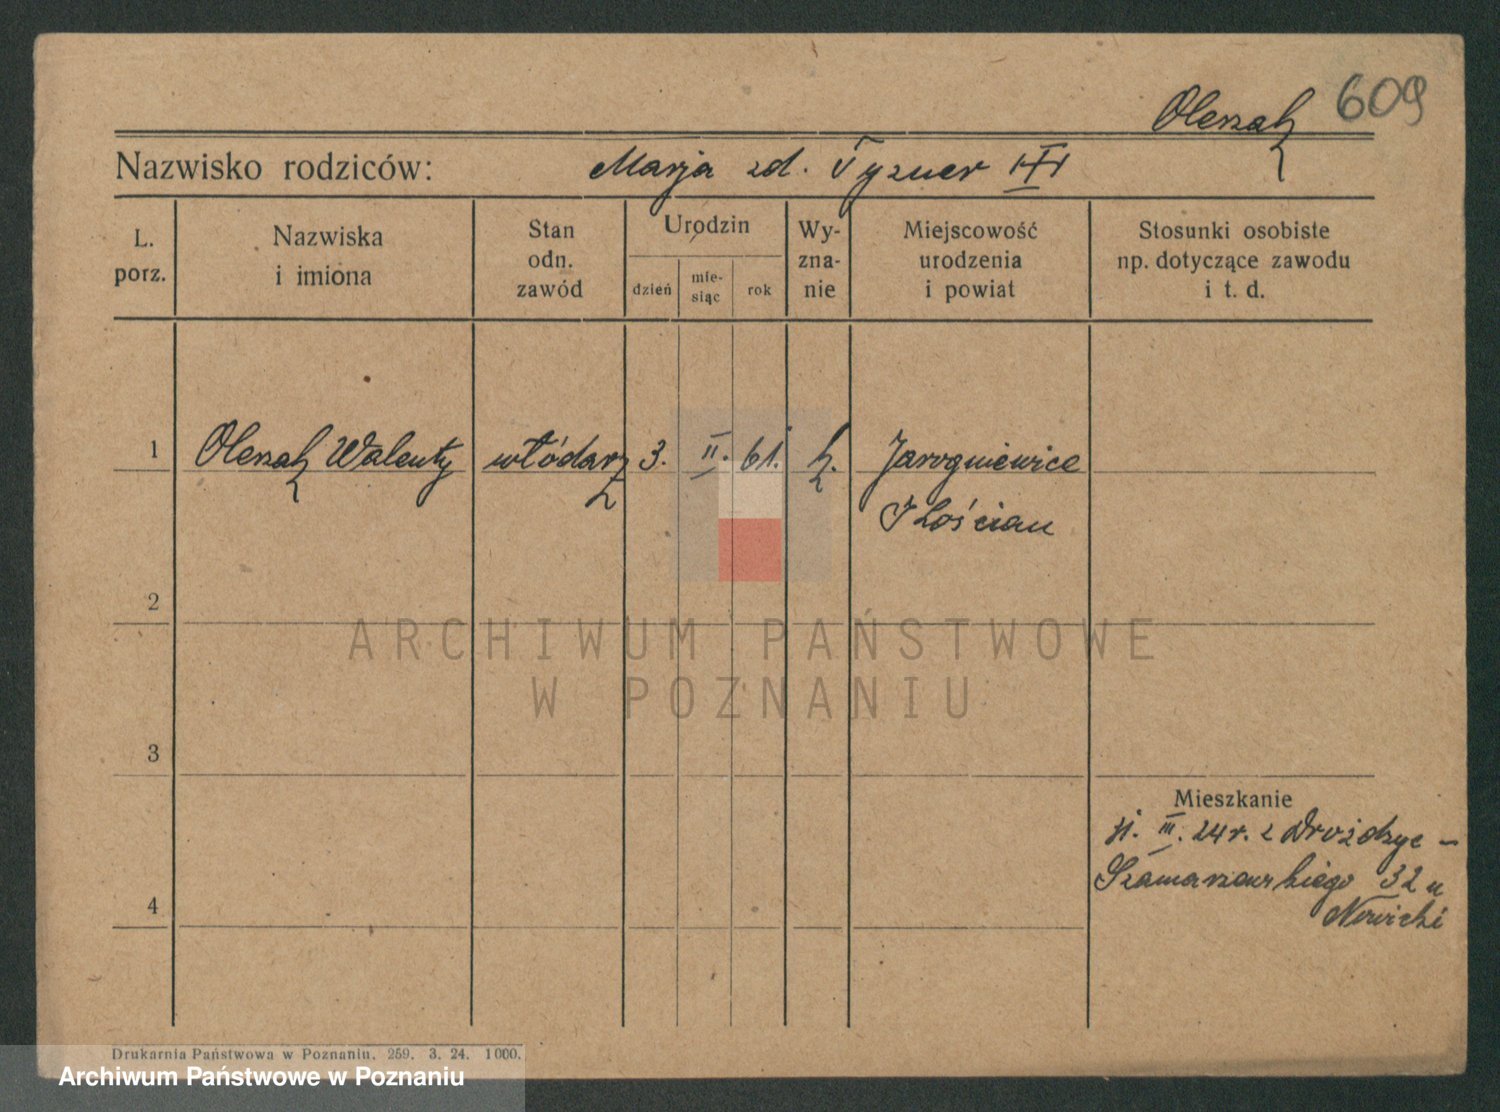 Oleszak 609
Nazwisko rodziców: Marja zd. Tyzner
L. porz.
Nazwiska i imiona
Stan odn. zawód
Urodzin
dzień
mie-siąc
rok
Wy-zna-nie
Miejscowość urodzenia i powiat
Stosunki osobiste np. dotyczące zawodu i t. d.
1 Oleszak Walenty włódarz 3. II. 61. k. Jarogniewice
Kościan
2
ARCHIWUM PAŃSTWOWE
W POZNANIU
3
Mieszkanie
III. 24 r. z Drożdzyc -
Szamarzewskiego 32 u
4
Nowicki
Drukarnia Państwowa w Poznaniu. 259. 3. 24. 1000.
Archiwum Państwowe w Poznaniu